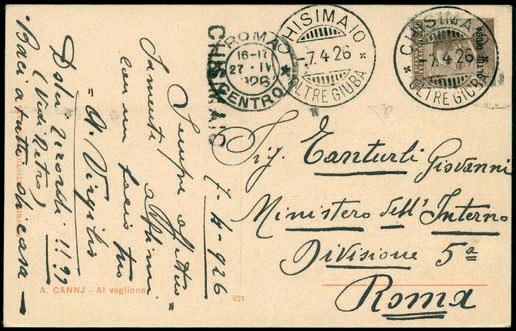 CHISIMAIO
-7.4.26
OLTRE GIUBA
CHISIMAIO
-7.4.26
OLTRE GIUBA
OLTRE GIUBA
ROMA
16-17
27·IV
926
CENTRO
CHISIMAIO
7-4-926
Sempre
con un bacio tuo
= A. Virgilio
Dolci ricordi !!
(Vedi Retro)
Baci a tutti di casa
Sig. Tanturli Giovanni
Ministero dell'Interno
Divisione 5a
Roma
A. CANNJ - Al veglione
921